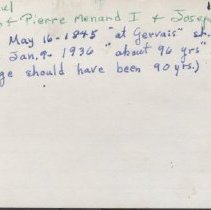 & Pierre Menard I & Josep
May 16-1845 "at Gervais" st.
Jan. 9- 1936 "about 96 yrs"
ge should have been 90 yrs.)